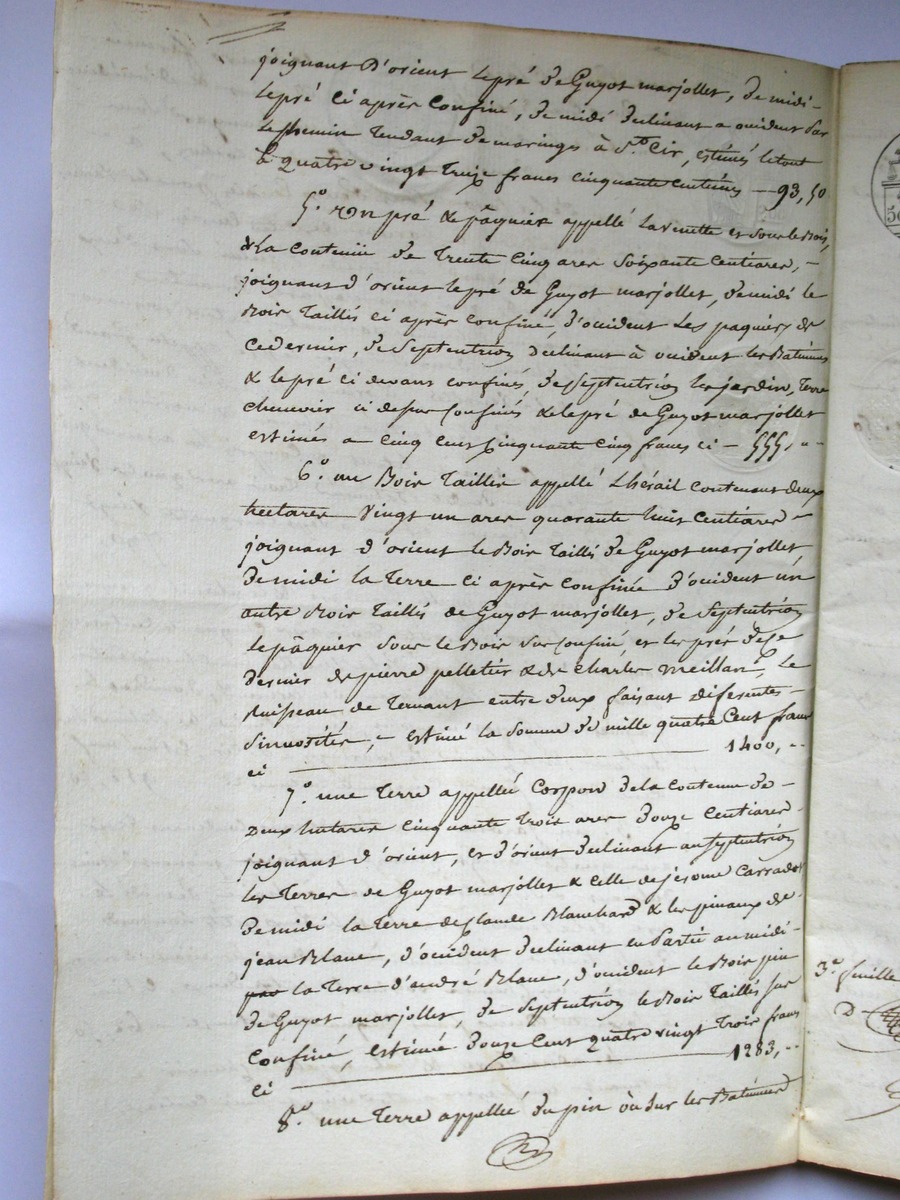 joignant d'orient le pré de Guyot marjollet, de midi
le pré ci après confiné, de midi declinant a occident par
le chemin tendant de maringes à St. Cir, estimés le tout
à quatre vingt treize francs cinquante centimes — 93, 50
5.o un pré & pâquier appellé et sous le bois,
de La contenüe de trente cinq ares soixante centiares, —
joignant d'orient le pré de Guyot marjollet, de midi le
Bois taillis ci après confiné, d'occident les paquiers de
ce dernier, de Septentrion declinant à occident les Batimens
& le pré ci devant confinés, de Septentrion les jardin, terre
chenevier ci dessus confinés & le pré de Guyot marjollet
estimés a cinq cent cinquante cinq francs ci — 555, "
6.o un Bois taillis appellé contenant deux
hectares vingt un ares quarante huit centiares —
joignant d'orient le Bois taillis de Guyot marjollet,
de midi la terre ci après confinée d'occident un
autre Bois taillis de Guyot marjollet, de Septentrion
le pâquier sous le Bois sus confiné, et les prés de ce
dernier de pierre pelletier & de charles meillan, le
Ruisseau de ternant entre deux faisant diferentes
Sinuosités, — estimé la somme de mille quatre cent francs
ci — 1400, "
7.o une terre appellée de la contenue de
deux hectares cinquante trois ares douze centiares
joignant d'orient, et d'orient declinant au septentrion
les terres de Guyot marjollet & celle de jérome
de midi la terre de claude Blanchard & les pinaux de
jean Blanc, d'occident declinant en partie au midi
par la terre d'andré Blanc, d'occident le Bois pin
de Guyot marjollet, de Septentrion le Bois taillis sus
confiné, estimée douze cent quatre vingt trois francs
ci — 1283, "
8.o une terre appellée du pin ou sur les Batimens
3.e feuille